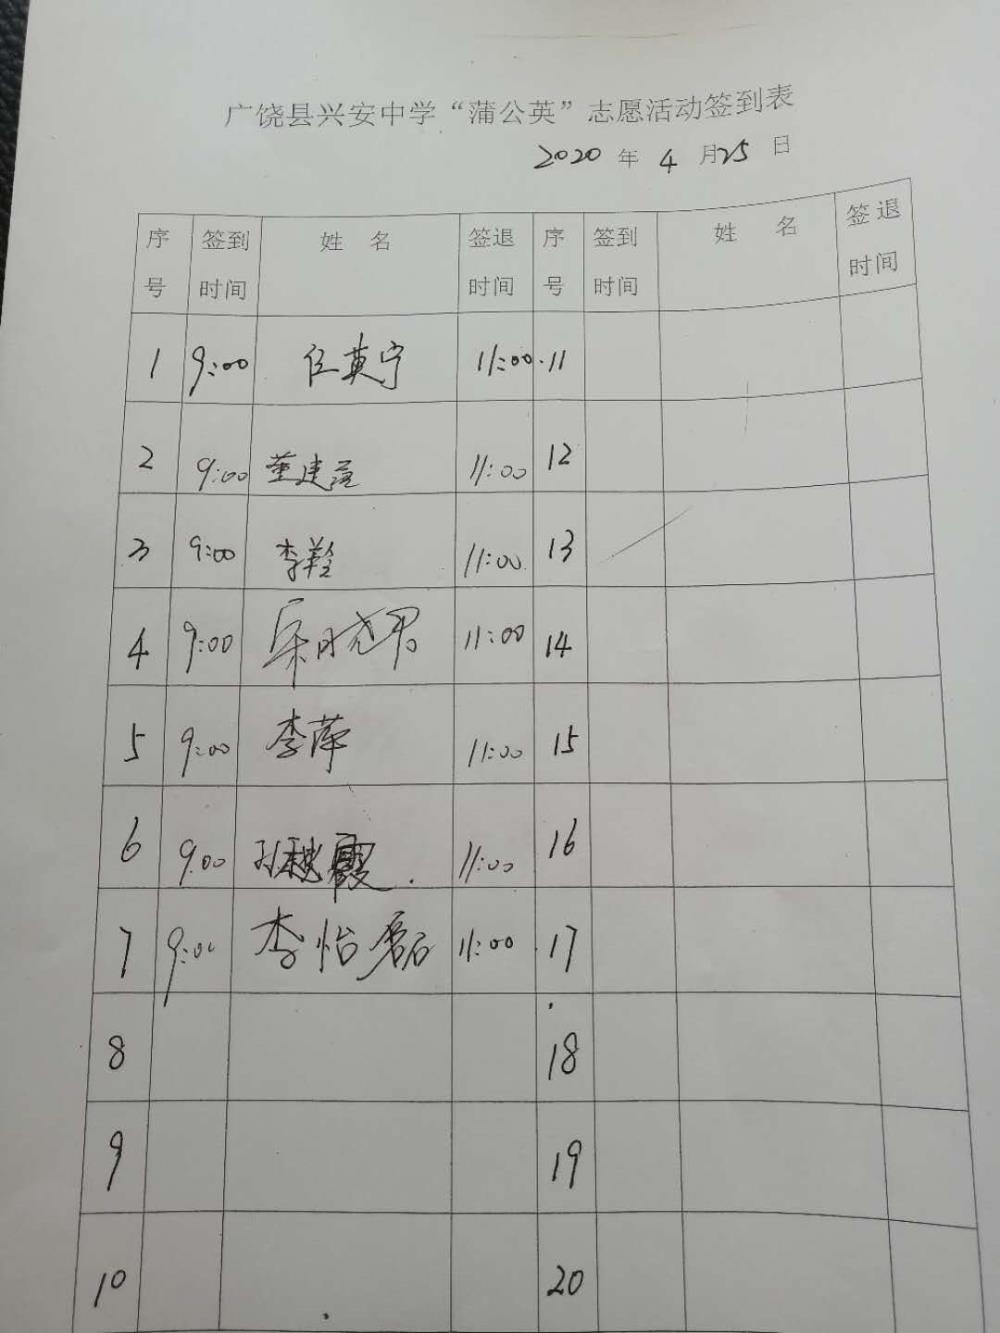 广饶县兴安中学“蒲公英”志愿活动签到表
2020 年 4 月 25 日
序号 签到时间 姓 名 签退时间 序号 签到时间 姓 名 签退时间
1 9:00 任英宁 11:00 11
2 9:00 董建 11:00 12
3 9:00 李 11:00 13
4 9:00 晓君 11:00 14
5 9:00 李萍 11:00 15
6 9:00 孙 霞 11:00 16
7 9:00 李怡磊 11:00 17
8 18
9 19
10 20